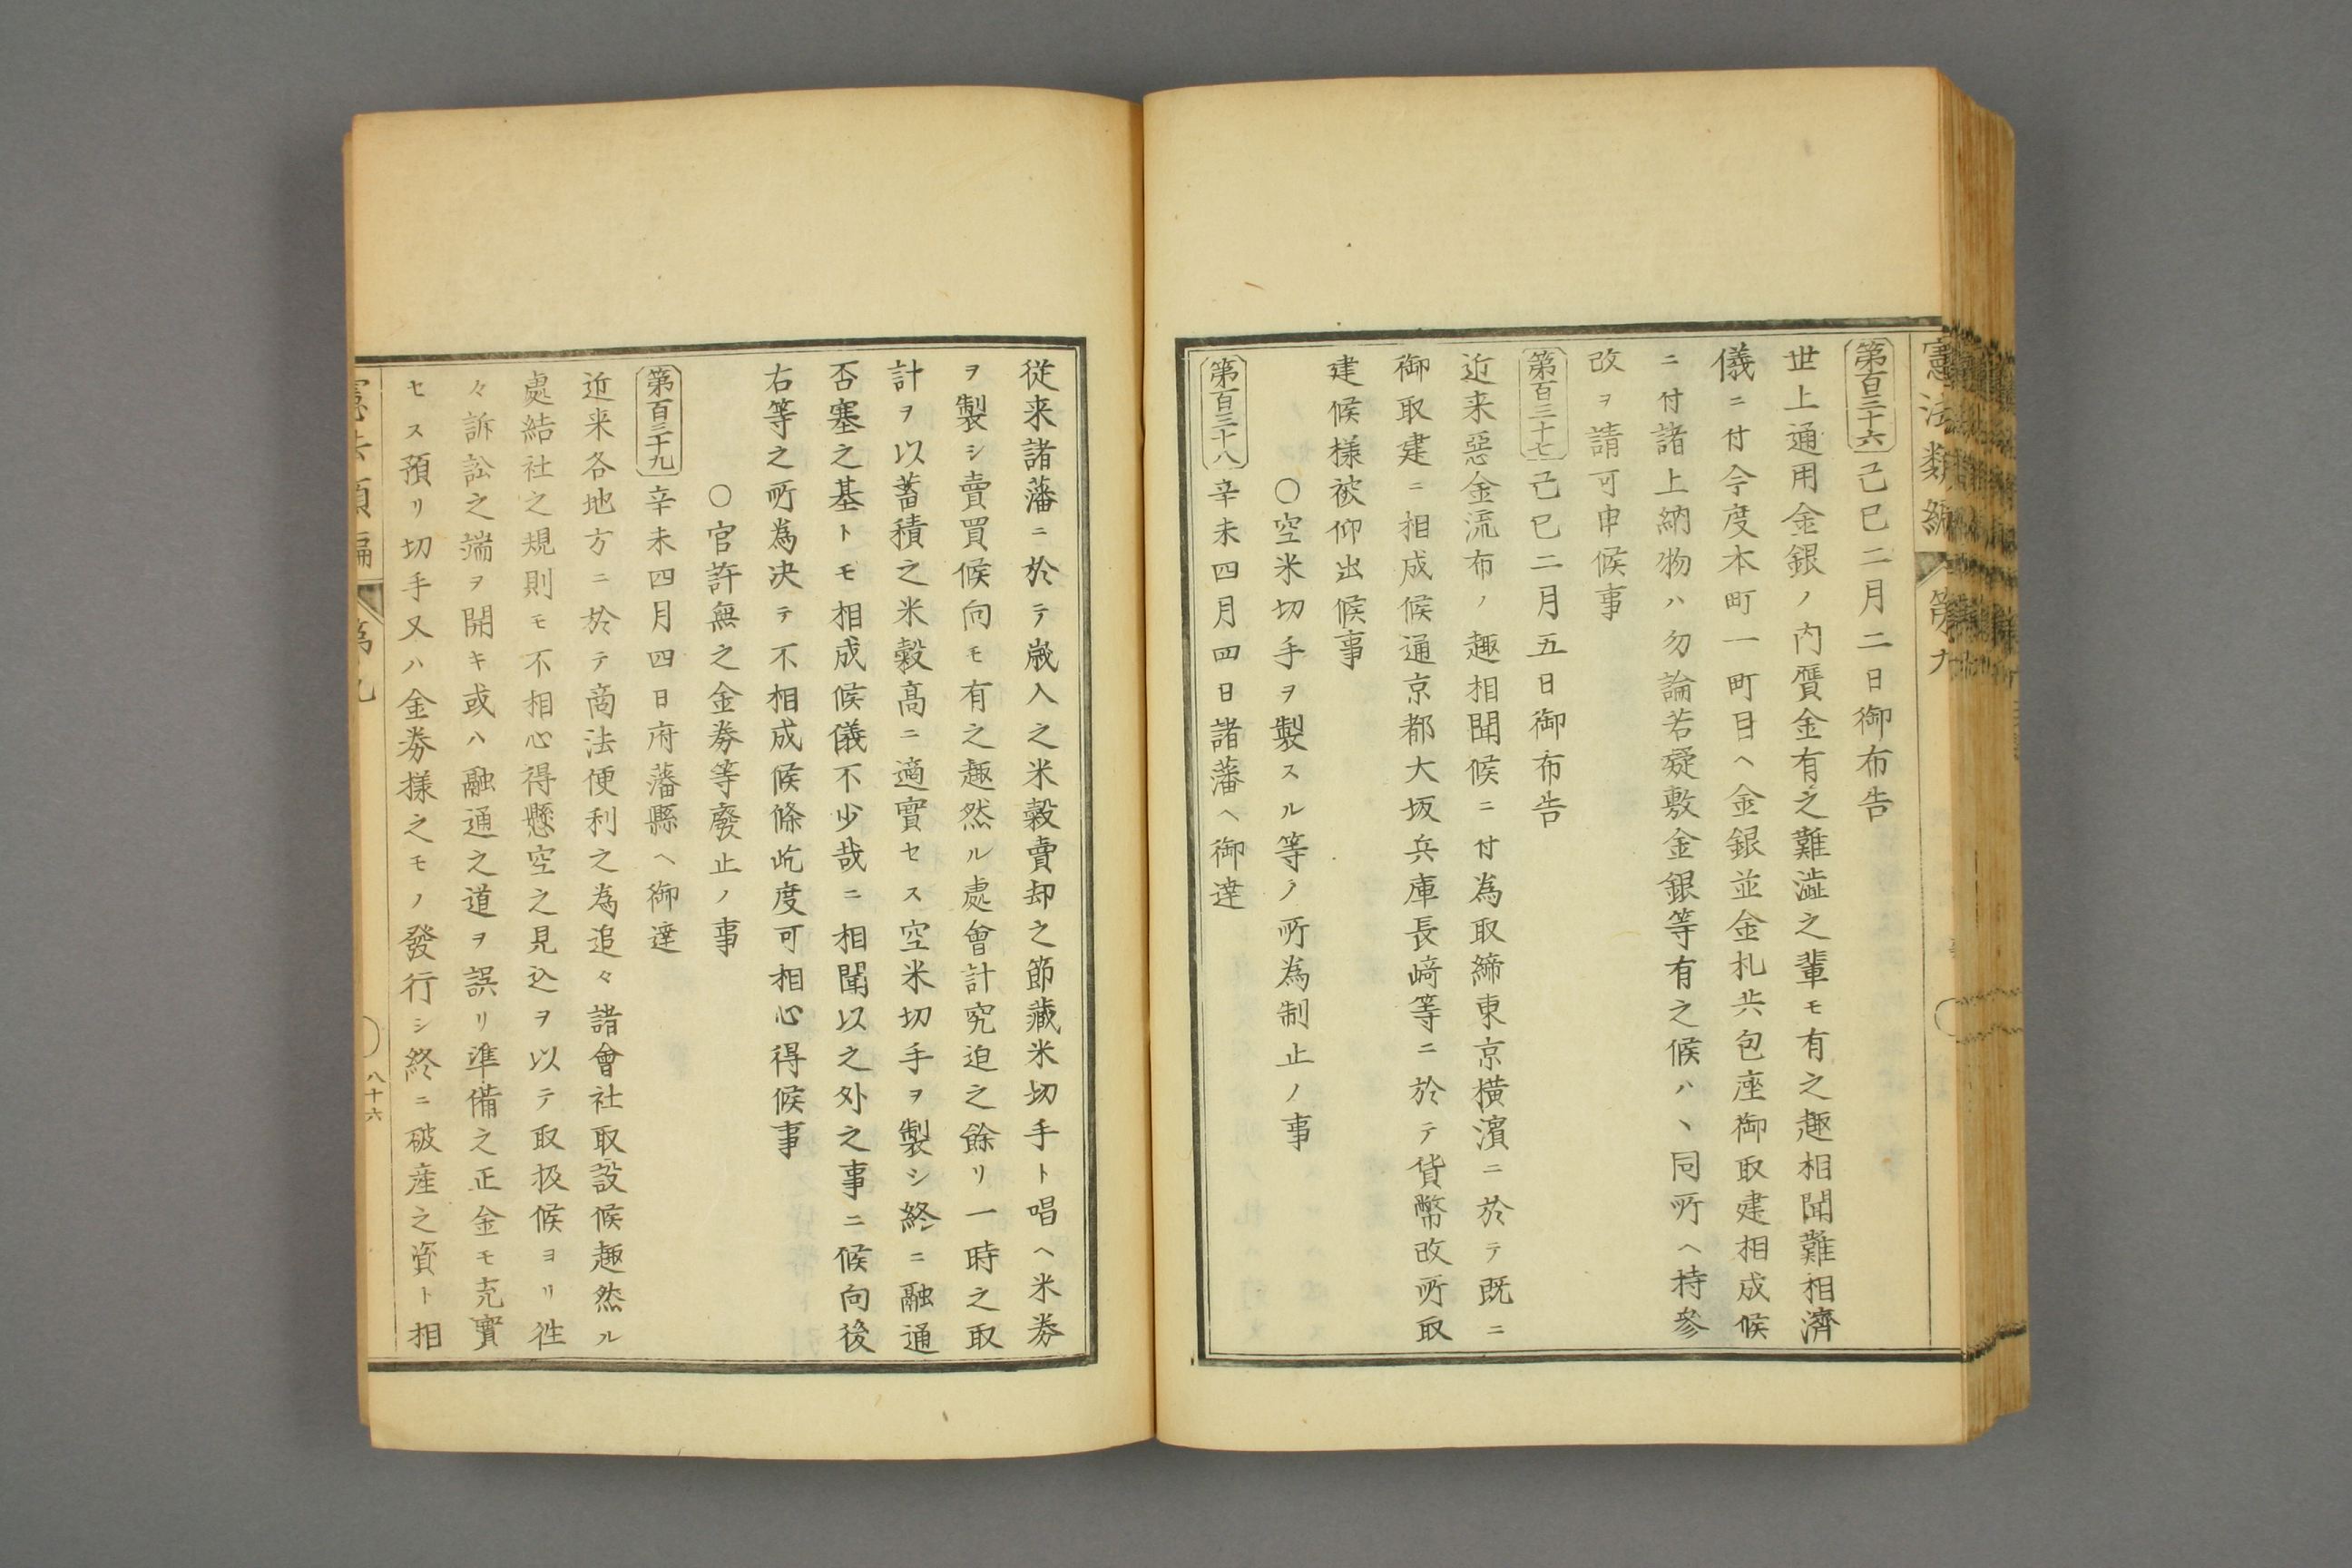 憲法類編 第九
第百三十六 己巳二月二日御布告
世上通用金銀ノ內贋金有之難澁之輩モ有之趣相聞難相濟
儀ニ付今度本町一町目ヘ金銀並金札共包座御取建相成候
ニ付諸上納物ハ勿論若疑敷金銀等有之候ハヽ同所ヘ持參
改ヲ請可申候事
第百三十七 己巳二月五日御布告
近来惡金流布ノ趣相聞候ニ付為取締東京橫濱ニ於テ既ニ
御取建ニ相成候通京都大坂兵庫長崎等ニ於テ貨幣改所取
建候樣被仰出候事
○空米切手ヲ製スル等ノ所為制止ノ事
第百三十八 辛未四月四日諸藩ヘ御達
従来諸藩ニ於テ歳入之米穀賣却之節藏米切手ト唱ヘ米券
ヲ製シ賣買候向モ有之趣然ル處會計究迫之餘リ一時之取
計ヲ以蓄積之米穀高ニ適實セス空米切手ヲ製シ終ニ融通
否塞之基トモ相成候儀不少哉ニ相聞以之外之事ニ候向後
右等之所為決テ不相成候條屹度可相心得候事
○官許無之金券等廢止ノ事
第百三十九 辛未四月四日府藩縣ヘ御達
近来各地方ニ於テ商法便利之為追々諸會社取設候趣然ル
處結社之規則モ不相心得懸空之見込ヲ以テ取扱候ヨリ徃
々訴訟之端ヲ開キ或ハ融通之道ヲ誤リ準備之正金モ充實
セス預リ切手又ハ金券樣之モノ發行シ終ニ破産之資ト相
憲法類編 第九 八十六